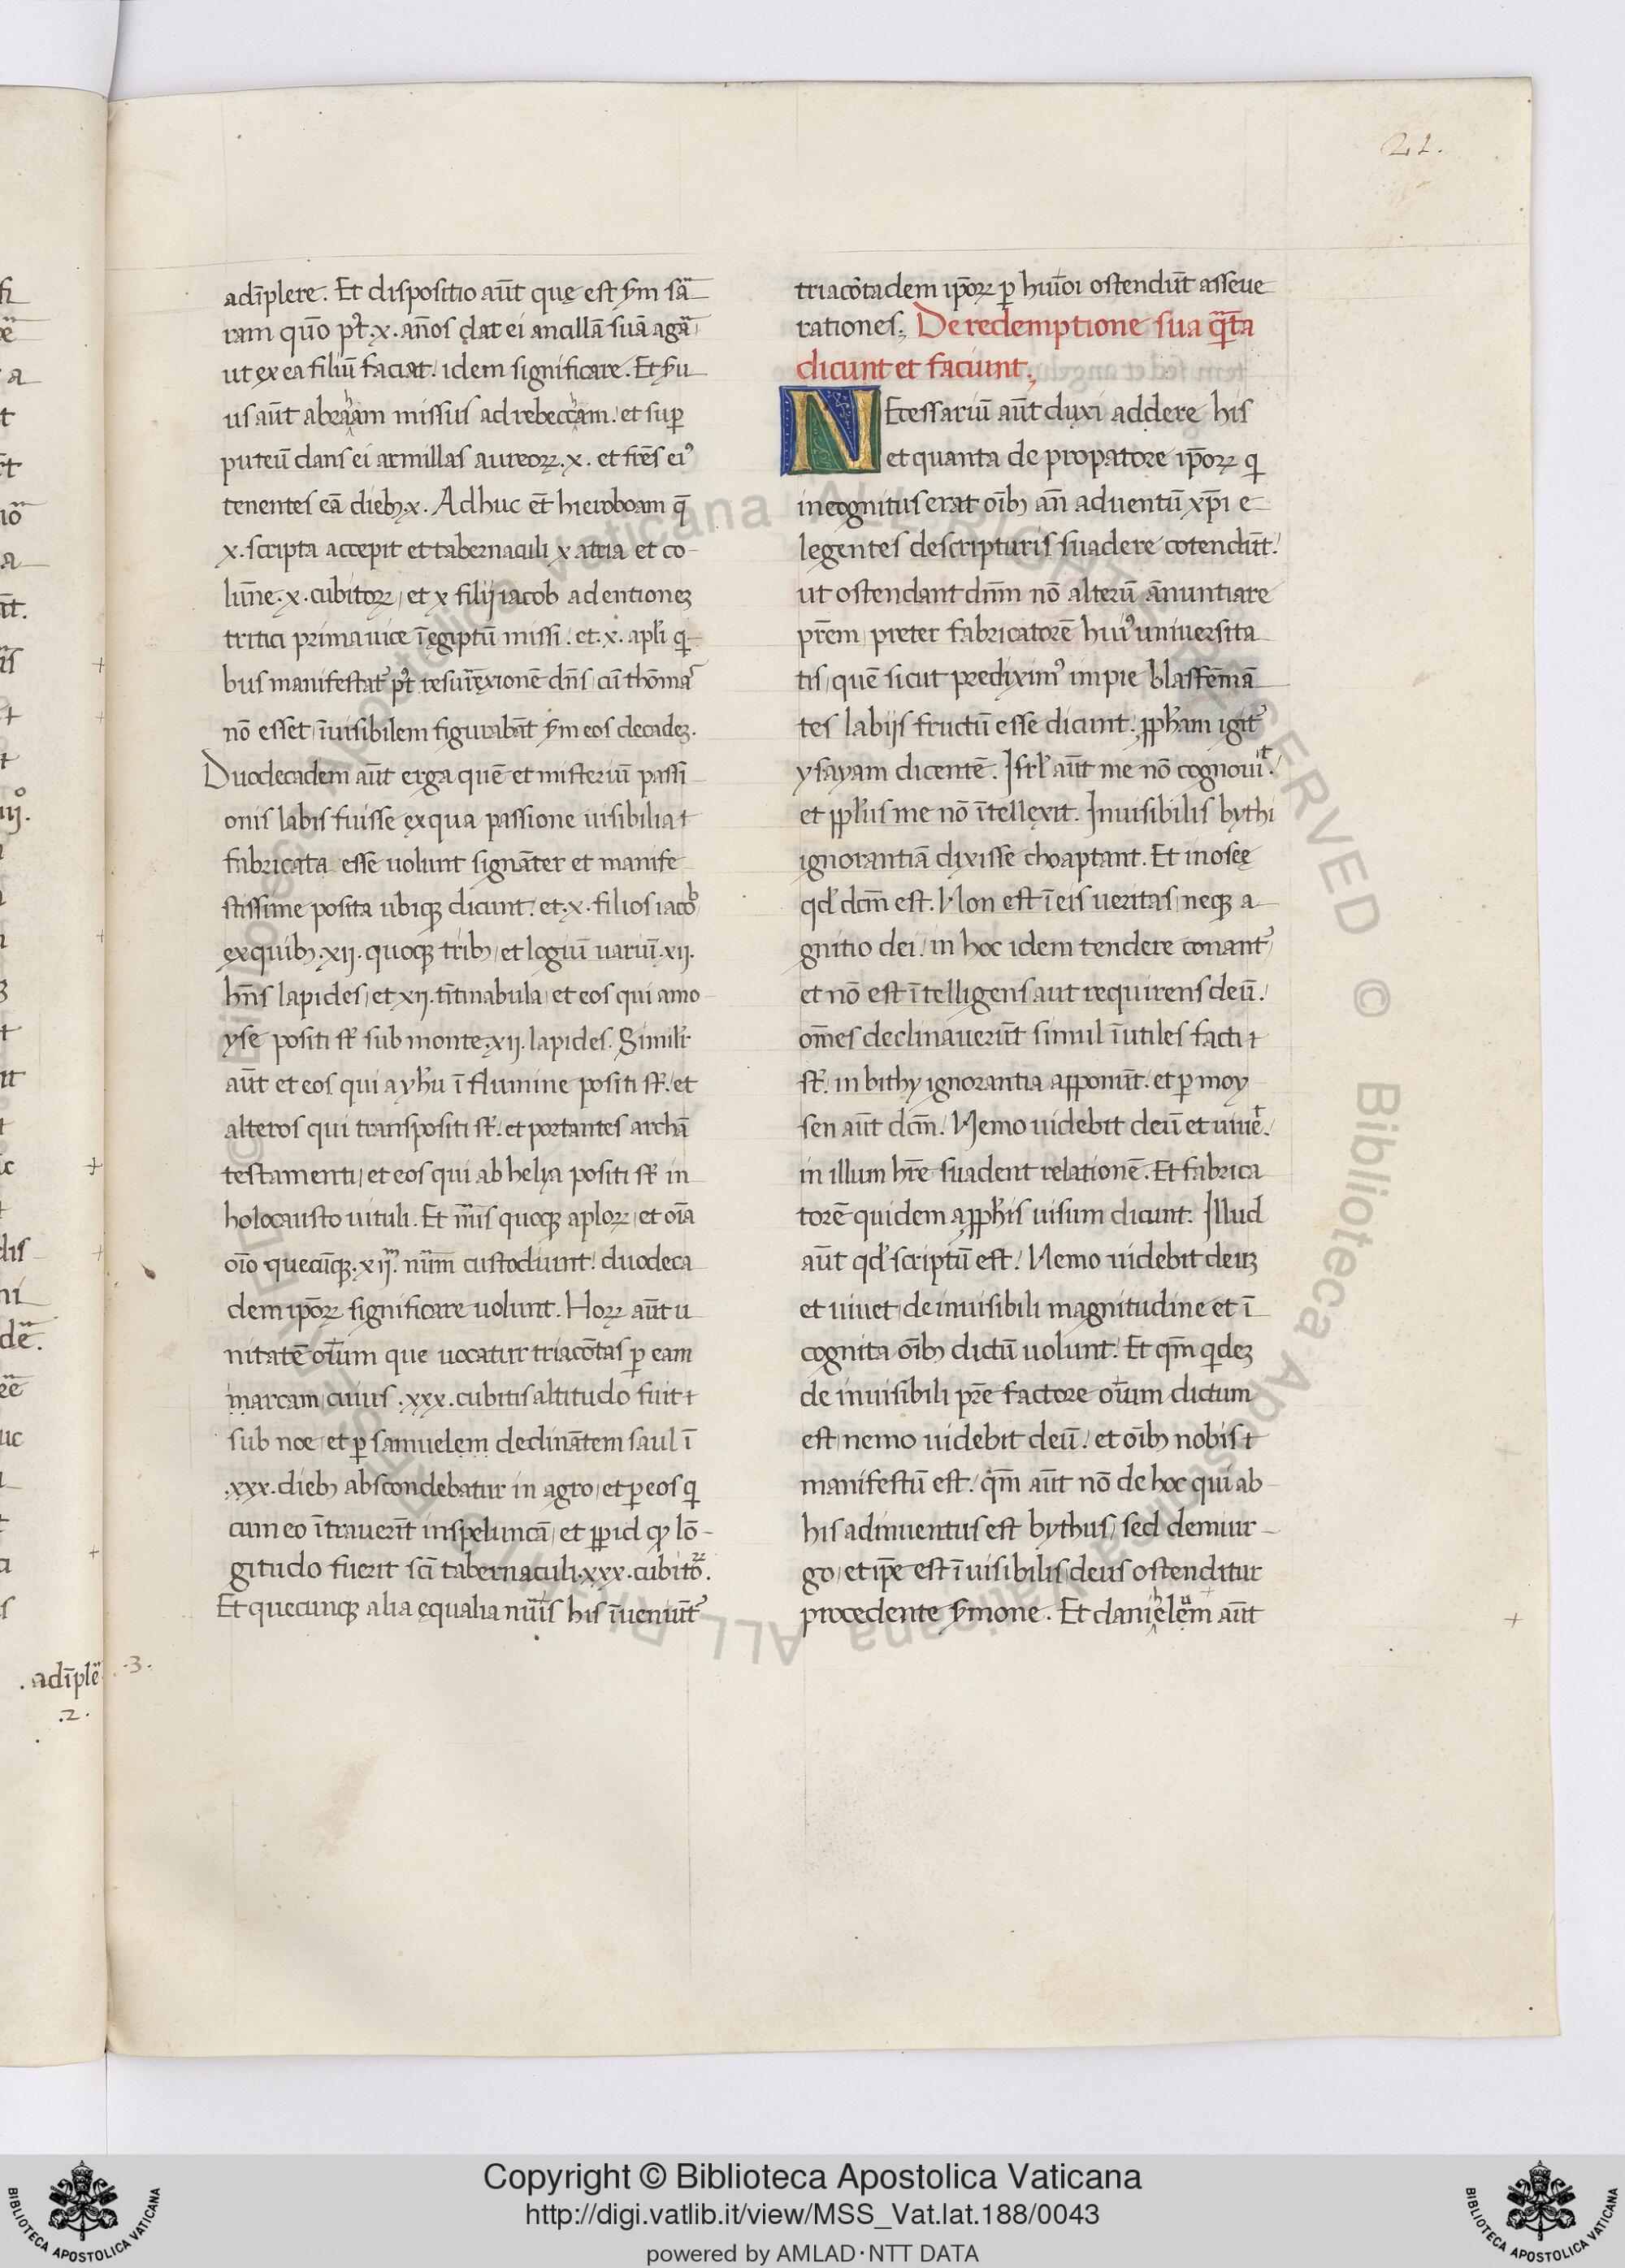 21.
adīplere. Et dispositio aūt quę est s̄m sā
ram quō pꝰt .x. an̄os dat ei ancillā suā agā
ut ex ea filiū faciat. idem significare. Et s̄u
us aūt abraam missus ad rebeccam. et suꝑ
puteū dans ei armillas aureoꝝ .x. et fr̄es eiꝰ
tenentes eā dieb; .x. Adhuc et̄ hieroboam q̄
.x. scripta accepit et tabernaculi x atria et co-
lūne .x. cubitoꝝ, et x filij iacob ad entionez
tritici prima uice ī egiptū missi. et .x. apl̓i q-
bus manifestatᷣ pꝰt resurexionē dn̄s, cū thōmas
nō esset, īuisibilem figurabāt s̄m eos decadez.
Duodecadem aūt erga quē et misteriū passi
onis labis fuisse ex qua passione uisibilia
fabricata esse uolunt signāter et manife
stissime posita ubiqꝫ dicunt. et .x. filios iacob
ex quib; .xij. quoqꝫ trib;, et logiū uariū .xij.
hn̄s lapides, et xij. tītinabula, et eos qui amo-
yse positi st̄ sub monte .xij. lapides. Simil̓r
aūt et eos qui a yhū ī flumine positi st̄. et
alteros qui transpositi st̄. et portantes archā
testamenti, et eos qui ab helya positi st̄ in
holocausto uituli. Et nūis quoqꝫ aploꝝ, et oīa
oīo quecūqꝫ .xij. nūm custodiunt. duodeca
dem ipōꝝ significare uolunt. Hoꝝ aūt u
nitatē oīum que uocatur triacōtas ꝑ eam
marcam, cuius .xxx. cubitis altitudo fuit
sub noe, et ꝑ samuelem declinātem saul ī
.xxx. dieb; abscondebatur in agro, et ꝑ eos q
cum eo ītrauerīt in speluncā, et ꝓpid qꝫ lō-
gitudo fuerit sc̄i tabernaculi .xxx. cubitoꝝ.
Et quecunqꝫ alia equalia nūis his īueniūtᷣ
triacōtadem ipōꝝ ꝑ huīoi ostendūt asseue
rationes; De redemptione sua q̄ta
dicunt et faciunt;
NEcessariū aūt duxi addere his
et quanta de propatore ipōꝝ q
incognitus erat oīb; an̄ aduentū xp̄i e-
legentes de scripturis suadere cōtendūt.
ut ostendant dn̄m nō alterū ānuntiare
pr̄em, preter fabricatorē huiꝰ uniuersita
tis, quē sicut prediximꝰ impie blasfēmā
tes labijs fructū esse dicunt. ꝓph̓am igitᷣ
ysayam dicentē. Isrl̓ aūt me nō cognouit.
et ppl̓us me nō ītellexit. Inuisibilis bythi
ignorantiā dixisse choaptant. Et in oseę
qd̓ dcm̄ est. Non est ī eis ueritas, neqꝫ a-
gnitio dei. in hoc idem tendere conantᷣ
et nō est ītelligens aut requirens deū.
om̄es declinauerūt simul īutiles facti
st̄. in bithy ignorantia apponūt. et ꝑ moy
sen aūt dcm̄. Nemo uidebit deū et uiuet.
in illum hr̄e suadent relationē. Et fabrica
torē quidem a ꝓph̓is uisum dicunt. Illud
aūt qd̓ scriptū est. Nemo uidebit deuz
et uiuet, de inuisibili magnitudine et ī
cognita oīb; dictū uolunt. Et qm̄ qdez
de inuisibili pr̄e factore oīum dictum
est, nemo uidebit deū. et oīb; nobis
manifestū est. qm̄ aūt nō de hoc qui ab-
his adinuentus est bythus, sed demiur-
go, et ip̄e est īuisibilis, deus ostenditur
procedente s̄mone. Et danielem aūt
.adīple
.2.
.3.
Copyright © Biblioteca Apostolica Vaticana
http://digi.vatlib.it/view/MSS_Vat.lat.188/0043
powered by AMLAD·NTT DATA
BIBLIOTECA APOSTOLICA VATICANA
BIBLIOTECA APOSTOLICA VATICANA